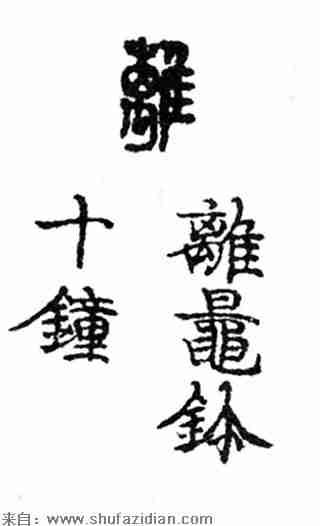 離
離鼂鉨
十鐘
来自：www.shufazidian.com